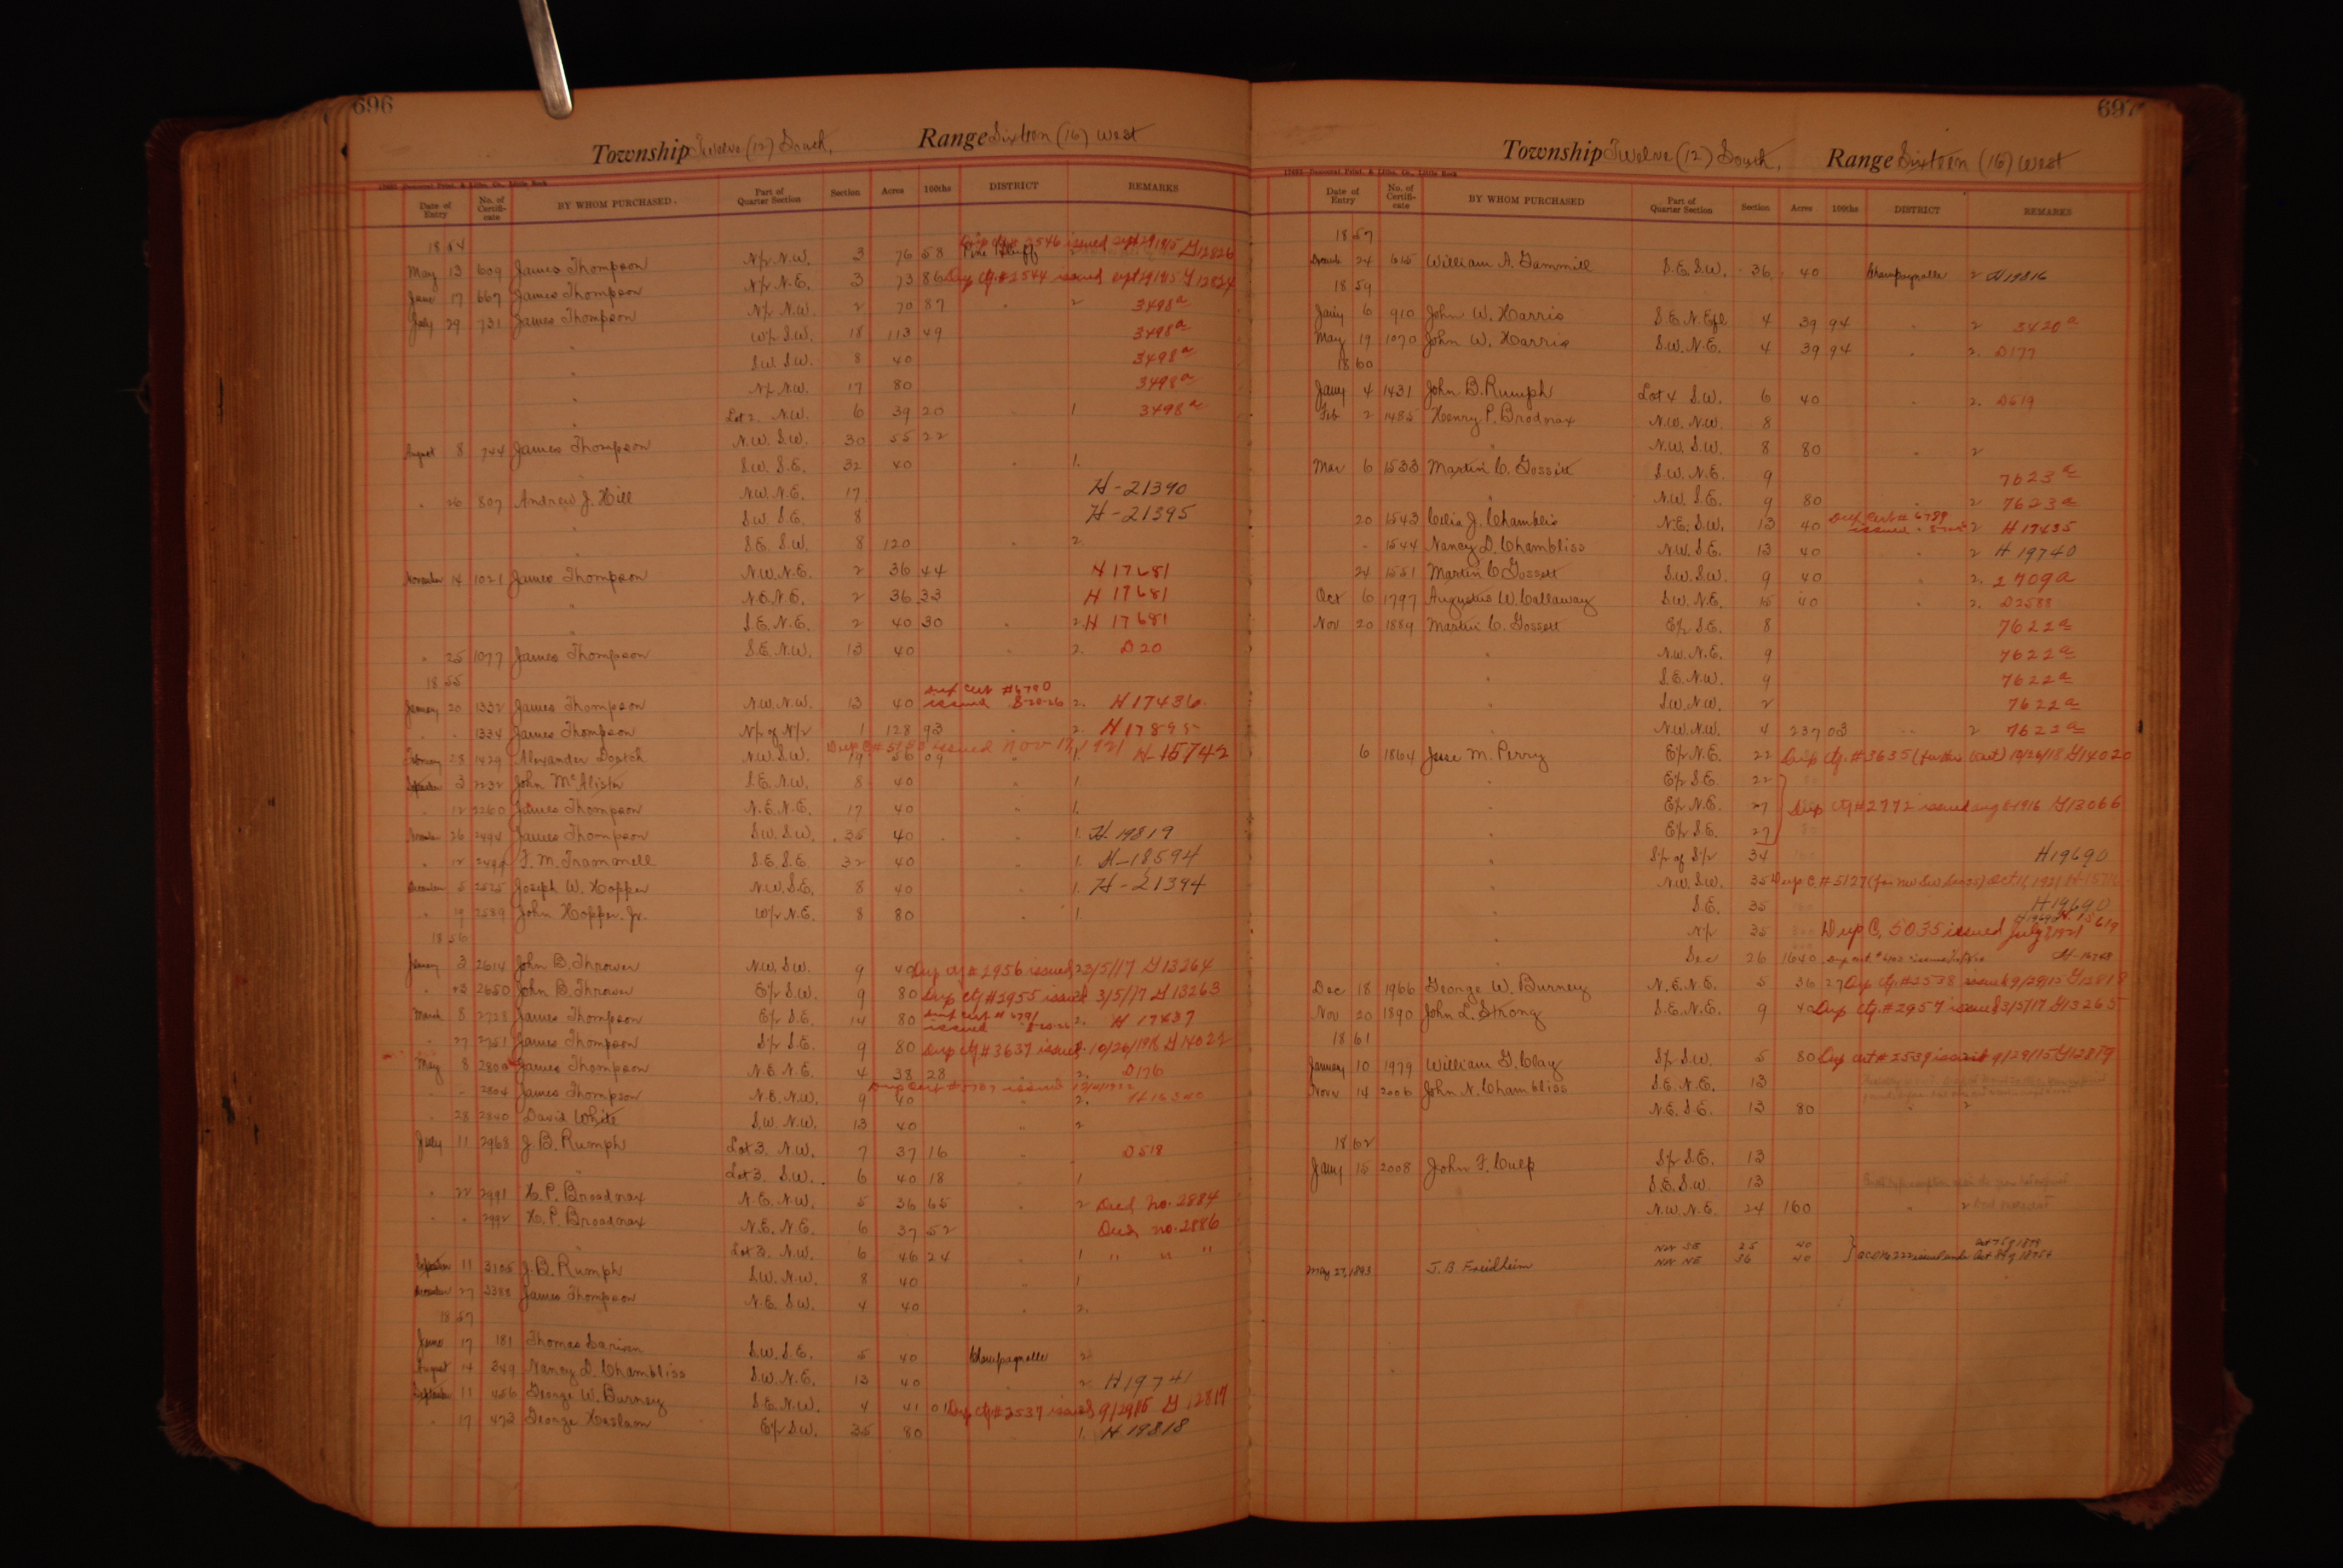 696
Township Twelve (12) South, Range Sixteen (16) West
Date of Entry No. of Certifi-cate BY WHOM PURCHASED. Part of Quarter Section Section Acres 100ths DISTRICT REMARKS
1854
May 13 609 James Thompson N/2 N.W. 3 76 58 Pine Bluff Dup Ctf # 2546 issued G12826
June 17 667 James Thompson N/2 N.E. 3 73 86 Dup Ctf. # 2544 issued G12824
July 29 731 James Thompson N/2 N.W. 2 70 87 " 2 3498a
W/2 S.W. 18 113 49 3498a
" S.W. S.W. 8 40 3498a
" N/2 N.W. 17 80 3498a
" Lot 2. N.W. 6 39 20 1 3498a
August 8 744 James Thompson N.W. S.W. 30 55 22
" S.W. S.E. 32 40 " 1.
" 26 807 Andrew J. Hill N.W. N.E. 17 H-21390
" S.W. S.E. 8 H-21395
" S.E. S.W. 8 120 " 2.
November 14 1021 James Thompson N.W. N.E. 2 36 44 H 17681
" N.E. N.E. 2 36 33 H 17681
" S.E. N.E. 2 40 30 " 2. H 17681
" 25 1077 James Thompson S.E. N.W. 13 40 " 2. D 20
1855
January 20 1332 James Thompson N.W. N.W. 13 40 Dup Cert #6790 issued 8-20-26 2. H 17436
" " 1334 James Thompson N/2 of N/2 1 128 93 " 2. H 17895
February 28 1429 Alexander Dortch N.W. S.W. 19 56 09 issued Nov 17, 1921 1. H-15742
September 3 2232 John McAlister S.E. N.W. 8 40 " 1.
" 12 2260 James Thompson N.E. N.E. 17 40 " 1.
November 26 2494 James Thompson S.W. S.W. 35 40 " 1. H-19819
" 12 2499 F. M. Trammell S.E. S.E. 32 40 1. H-18594
December 5 2525 Joseph W. Hopper N.W. S.E. 8 40 " 1. H-21394
" 19 2589 John Hopper Jr. W/2 N.E. 8 80 " 1.
1856
January 3 2614 John B. Thrower N.W. S.W. 9 40 Dup Ctf # 2956 issued 3/5/17 G13264
" 23 2650 John B. Thrower E/2 S.W. 9 80 Dup Ctf # 2955 issued 3/5/17 G13263
March 8 2728 James Thompson E/2 S.E. 14 80 Dup Cert # 6791 issued 8-20-26 2. H 17437
" 27 2751 James Thompson S/2 S.E. 9 80 Dup Ctf # 3637 issued 10/26/1918 G14022
May 8 2800 James Thompson N.E. N.E. 4 38 28 " 2. D176
" " 2804 James Thompson N.E. N.W. 9 40 " 2.
" 28 2840 David White S.W. N.W. 13 40 " 2
July 11 2968 J. B. Rumph Lot 3. N.W. 7 37 16 " D518
" Lot 3. S.W. 6 40 18 1
" 22 2991 H. P. Broadnax N.E. N.W. 5 36 65 " 2 Deed No. 2884
" " 2992 H. P. Broadnax N.E. N.E. 6 37 52 Deed No. 2886
" Lot 3. N.W. 6 46 24 " 1 " " "
September 11 3105 J. B. Rumph S.W. N.W. 8 40 " 1
December 27 3388 James Thompson N.E. S.W. 4 40 " 2.
1857
June 17 181 Thomas S.W. S.E. 5 40 Champagnolle 2
August 14 349 Nancy D. Chambliss S.W. N.E. 13 40 " 2 H19741
September 11 456 George W. Burney S.E. N.W. 4 41 01 Dup Ctf # 2537 issued 9/29/15 G12817
" 17 473 George Haslam E/2 S.W. 35 80 1. H-19818
697
Township Twelve (12) South, Range Sixteen (16) West
Date of Entry No. of Certifi-cate BY WHOM PURCHASED Part of Quarter Section Section Acres 100ths DISTRICT REMARKS
1857
24 615 William A. Gammill S.E. S.W. 36 40 Champagnolle 2 H19816
1859
Jany 6 910 John W. Harris S.E. N.E. 4 39 94 " 2 3420a
May 19 1070 John W. Harris S.W. N.E. 4 39 94 " 2. D177
1860
Jany 4 1431 John B. Rumph Lot 4 S.W. 6 40 " 2. D519
Feb 2 1485 Henry P. Brodnax N.W. N.W. 8
" N.W. S.W. 8 80 " 2
Mar 6 1533 Martin C. Gossett S.W. N.E. 9 7623a
" N.W. S.E. 9 80 " 2 7623a
20 1543 Celia J. Chambliss N.E. S.W. 13 40 Dup Cert # 6789 issued 2 H 17435
" 1544 Nancy D. Chambliss N.W. S.E. 13 40 " 2 H 19740
24 1551 Martin C. Gossett S.W. S.W. 9 40 " 2. 2709a
Oct 6 1797 Augustus W. Callaway S.W. N.E. 15 40 " 2. D2588
Nov 20 1889 Martin C. Gossett E/2 S.E. 8 7622a
" N.W. N.E. 9 7622a
" S.E. N.W. 9 7622a
" S.W. N.W. 2 7622a
" N.W. N.W. 4 237 03 " 2 7622a
6 1864 Jesse M. Perry E/2 N.E. 22 Dup Ctf. # 3635 10/26/18 G14020
" E/2 S.E. 22
" E/2 N.E. 27 Dup Ctf # 2772 issued Aug 8-1916 G13066
" E/2 S.E. 27
" S/2 of S/2 34 H19690
" N.W. S.W. 35 Dup C. # 5127 Oct 11, 1921
" S.E. 35 H19690
" N/2 35 Dup C. 5035 issued July 1921
" Sec 26 1640
Dec 18 1966 George W. Burney N.E. N.E. 5 36 27 Dup Ctf. # 2538 issued 9/29/15 G12818
Nov 20 1890 John L. Strong S.E. N.E. 9 40 Dup Ctf. # 2957 issued 3/5/17 G13265
1861
January 10 1979 William G. Clay S/2 S.W. 5 80 Dup Cert # 2539 issued 9/29/15 G12819
Novr 14 2006 John N. Chambliss S.E. N.E. 13
N.E. S.E. 13 80 " 2
1862
Jany 15 2008 John F. Culp S/2 S.E. 13
S.E. S.W. 13
N.W. N.E. 24 160 " 2
NW SE 25 40
May 27, 1893 J. B. Friedheim NW NE 36 40